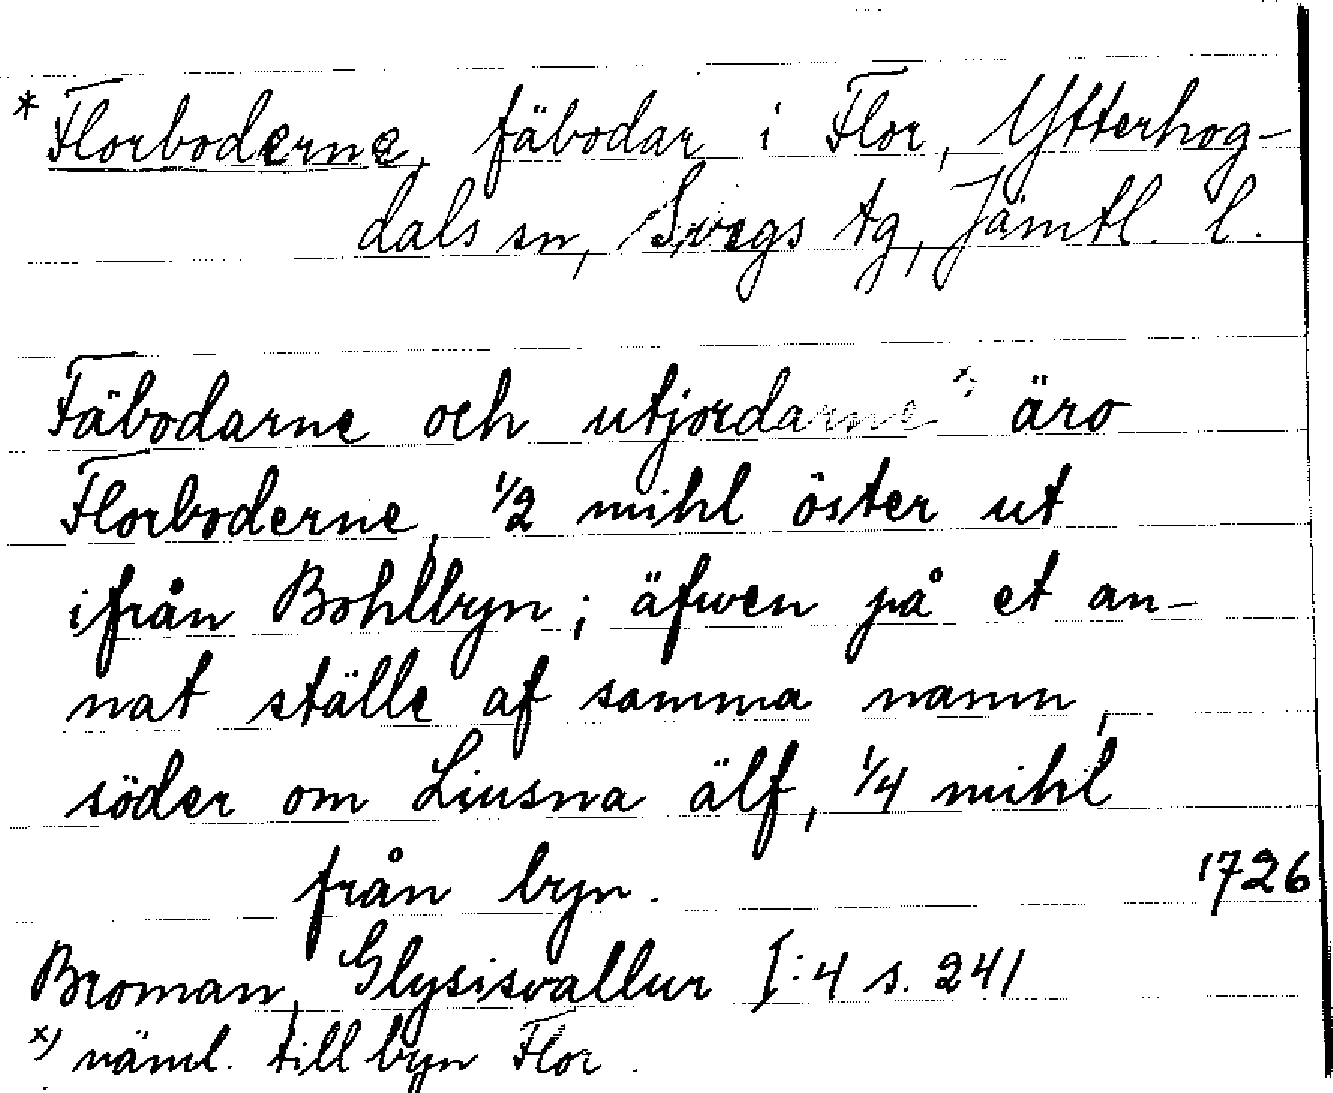 * Florboderne, fäbodar i Flor, Ytterhog-
dals sn, Svegs tg, Jämtl. l.
Fäbodarne och utjordarne x) äro
Florboderne, 1/2 mihl öster ut
ifrån Bohlbyn; äfwen på et an-
nat ställe af samma namn,
söder om Liusna älf, 1/4 mihl
från byn. 1726
Broman, Glysisvallur I:4 s. 241
x) näml. till byn Flor.